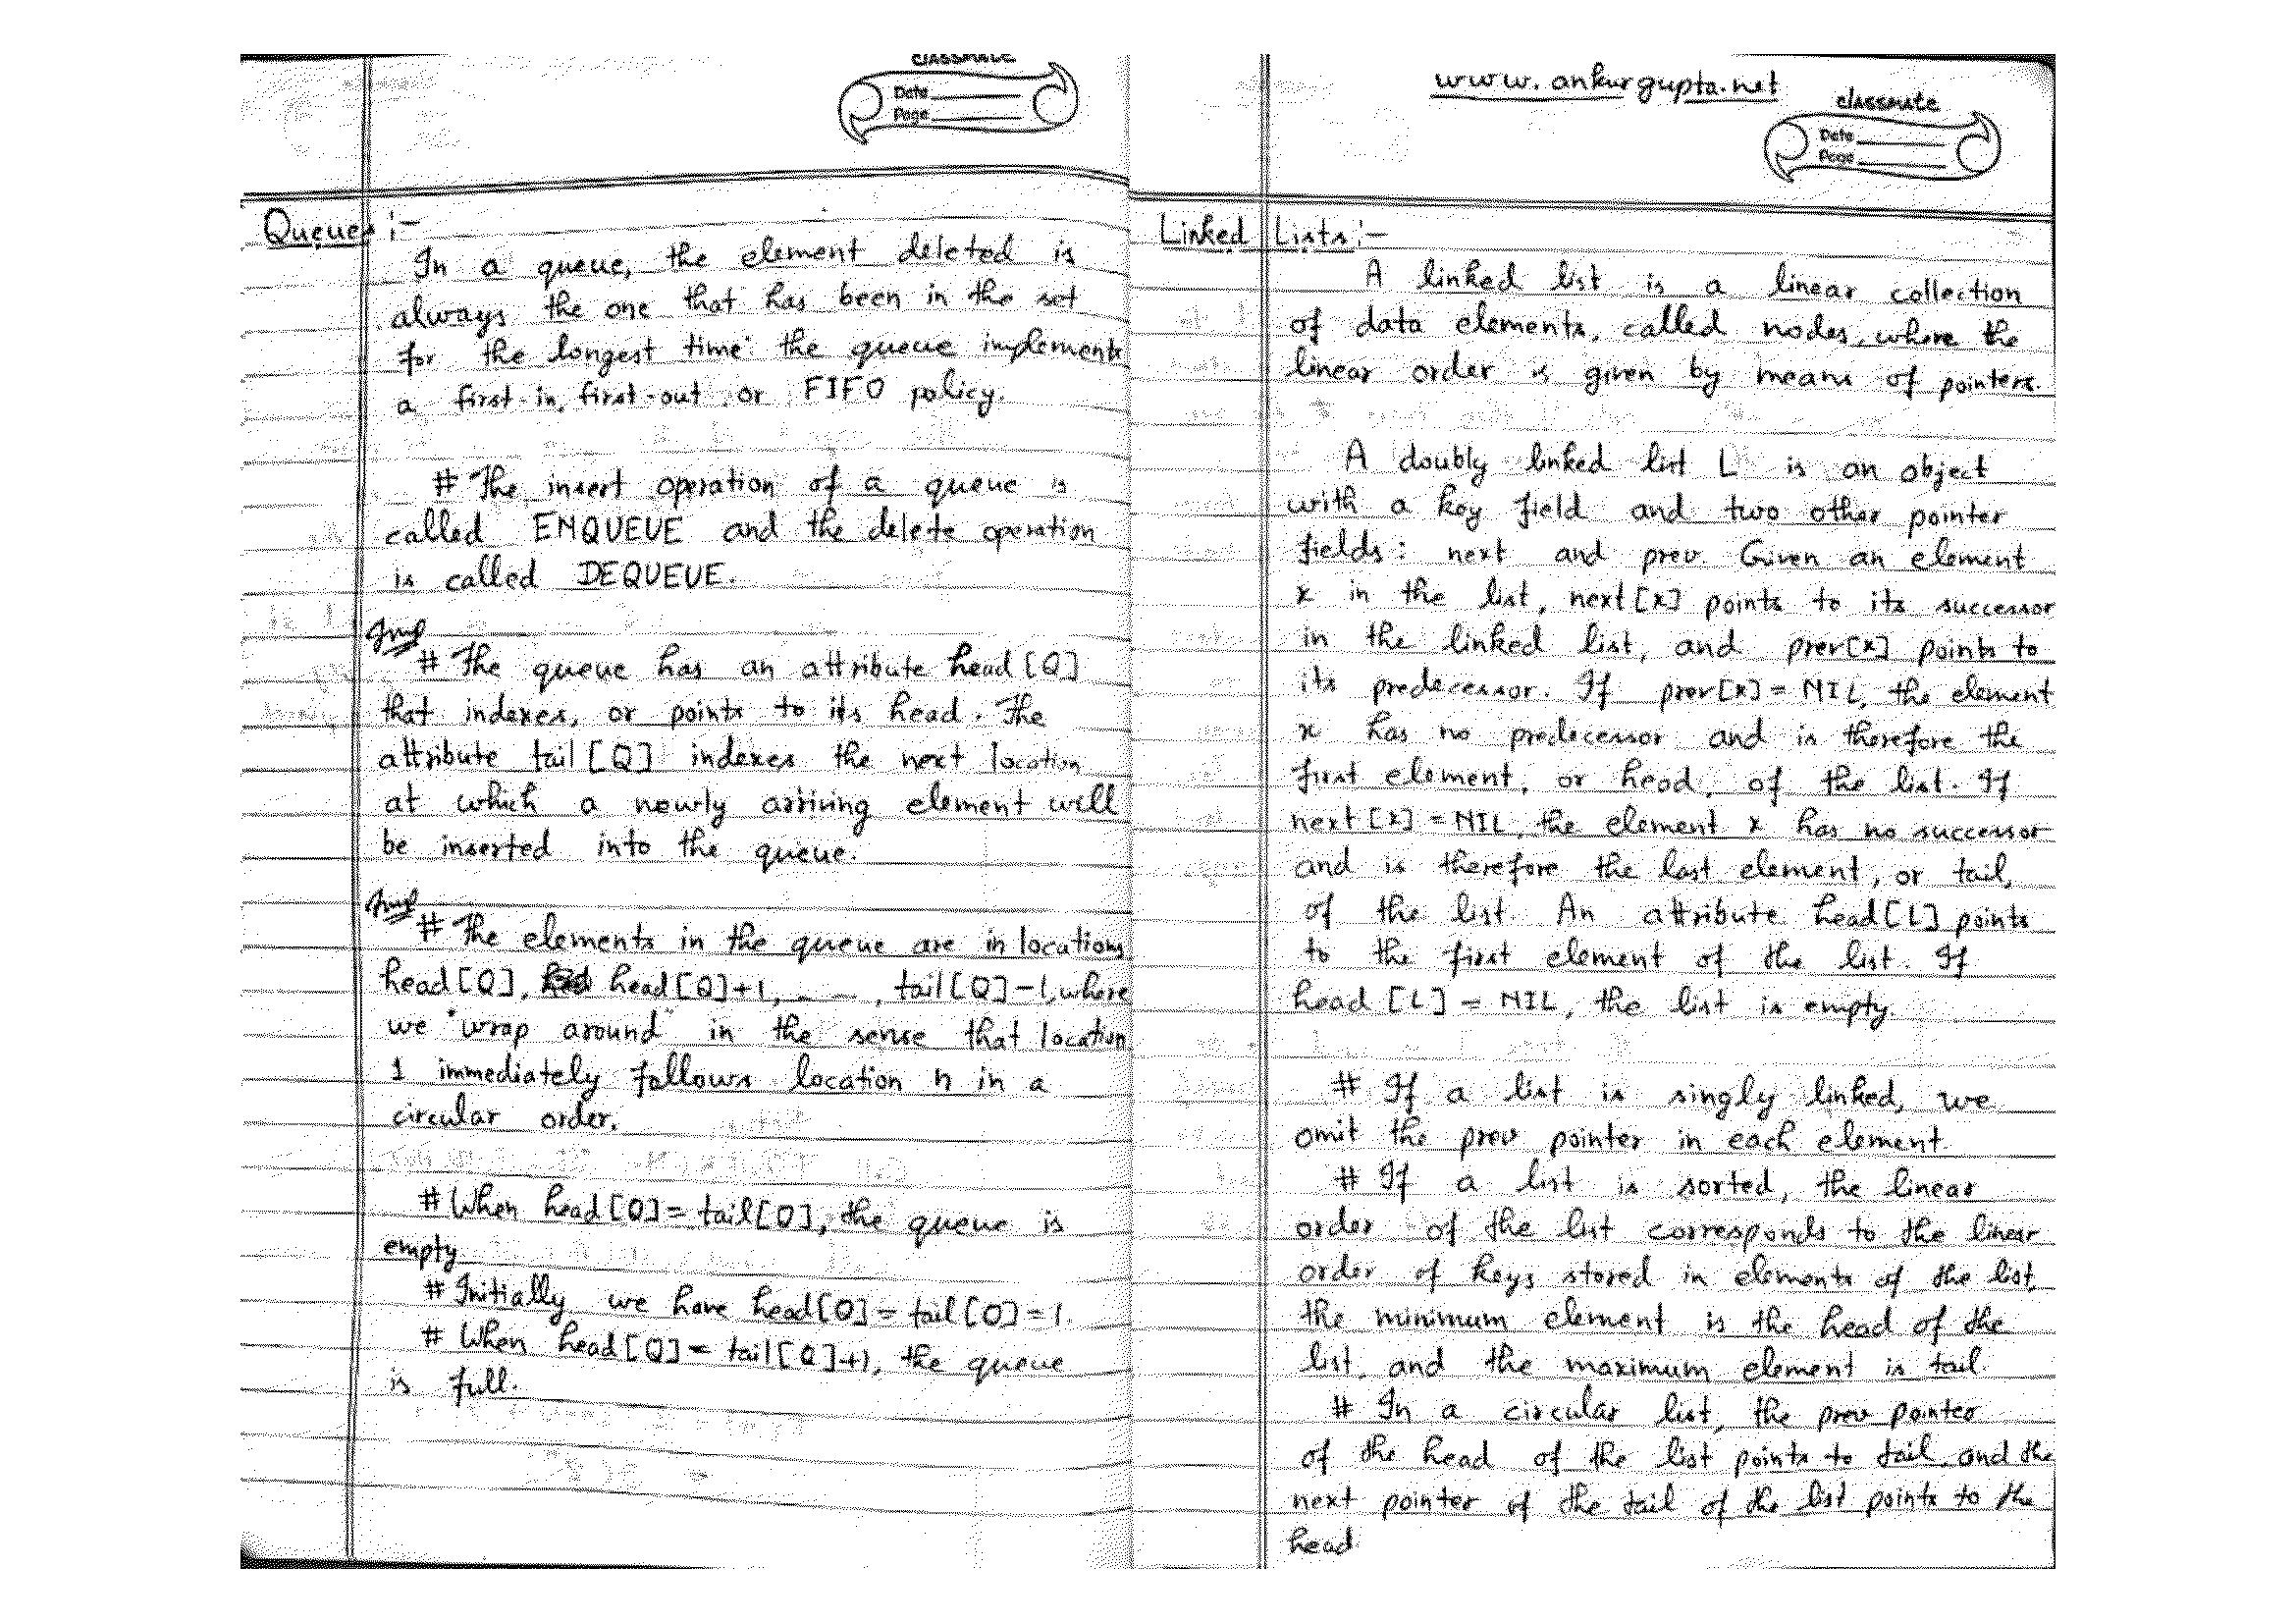 classmate
Date
Page
Queues :-
In a queue, the element deleted is
always the one that has been in the set
for the longest time: the queue implements
a first-in, first-out or FIFO policy.
# The insert operation of a queue is
called ENQUEUE and the delete operation
is called DEQUEUE.
Imp
# The queue has an attribute head[Q]
that indexes, or points to its head. The
attribute tail[Q] indexes the next location
at which a newly arriving element will
be inserted into the queue.
Imp
# The elements in the queue are in locations
head[Q], head[Q]+1, ...., tail[Q]-1, where
we "wrap around" in the sense that location
1 immediately follows location n in a
circular order.
# When head[Q] = tail[Q], the queue is
empty.
# Initially we have head[Q] = tail[Q] = 1.
# When head[Q] = tail[Q]+1, the queue
is full.
www.ankurgupta.net
classmate
Date
Page
Linked Lists:-
A linked list is a linear collection
of data elements, called nodes, where the
linear order is given by means of pointers.
A doubly linked list L is an object
with a key field and two other pointer
fields: next and prev. Given an element
x in the list, next[x] points to its successor
in the linked list, and prev[x] points to
its predecessor. If prev[x] = NIL, the element
x has no predecessor and is therefore the
first element, or head, of the list. If
next[x] = NIL, the element x has no successor
and is therefore the last element, or tail,
of the list. An attribute head[L] points
to the first element of the list. If
head[L] = NIL, the list is empty.
# If a list is singly linked, we
omit the prev pointer in each element.
# If a list is sorted, the linear
order of the list corresponds to the linear
order of keys stored in elements of the list,
the minimum element is the head of the
list, and the maximum element is tail.
# In a circular list, the prev pointer
of the head of the list points to tail, and the
next pointer of the tail of the list points to the
head.